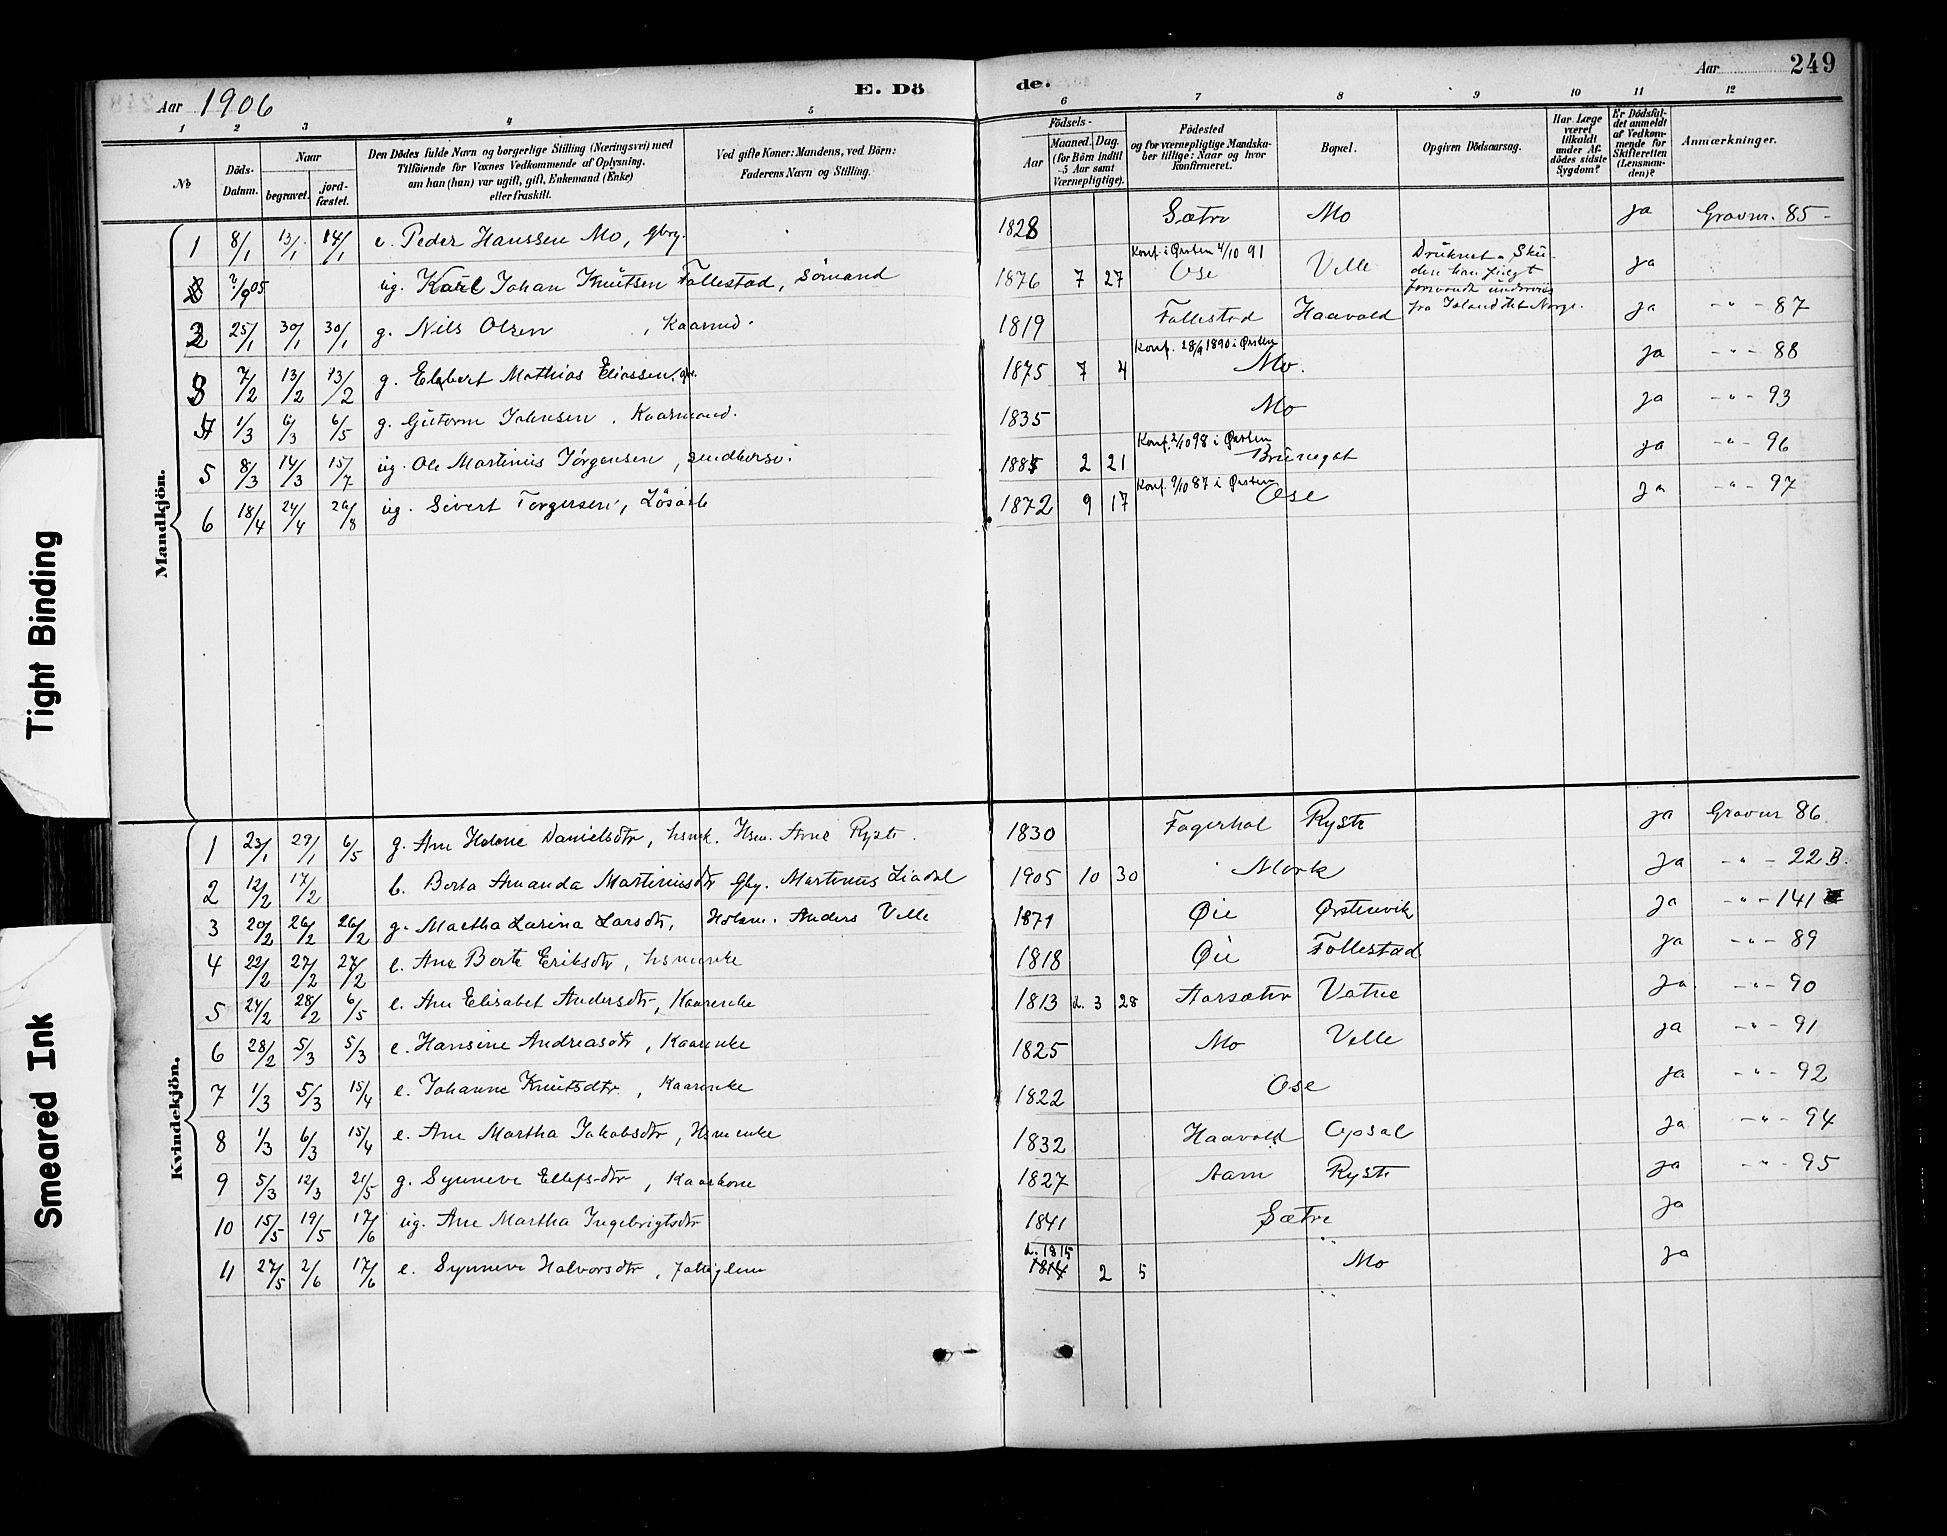 Tight Binding
Smeared Ink
Aar 1906
E. Dö
de.
Aar 249
1 2 3 4 5 6 7 8 9 10 11 12
№
Döds-
Datum.
Naar
begravet.
jord-
fæstet.
Den Dödes fulde Navn og borgerlige Stilling (Næringsvei) med
Tilföiende for Voxnes Vedkommende af Oplysning,
om han (hun) var ugift, gift, Enkemand (Enke)
eller fraskilt.
Ved gifte Koner: Mandens, ved Börn:
Faderens Navn og Stilling.
Födsels-
Aar
Maaned. Dag.
(for Börn indtil
5 Aar samt
Værnepligtige).
Födested
og for værnepligtige Mandska-
ber tillige: Naar og hvor
Konfirmeret.
Bopæl.
Opgiven Dödsaarsag.
Har Læge
været
tilkaldt
under Af-
dödes sidste
Sygdom?
Er Dödsfal-
det anmeldt
af Vedkom-
mende for
Skifteretten
(Lensman-
den)?
Anmærkninger.
Mandkjön.
1 8/1 13/1 14/1 e. Peder Hanssen Mo, Gbrg. 1828 Sætre Mo ja Gravnr. 85 -
?/9 05 ug. Karl Johan Knutsen Follestad, Sömand 1876 7 27 Konf. i Ørsten 4/10 91 Ose Velle Druknet. Sku-
den han fulgt
forsvandt underveis
fra Island til Norge. ja
2 25/1 30/1 30/1 g. Nils Olsen, Kaarmd. 1819 Follestad Haavold ja - " - 87
3 7/2 13/2 13/2 g. Elebert Mathias Eliassen, 1875 7 4 Konf. 28/9 1890 i Ørsten Mo. ja - " - 88
1/3 6/3 6/5 g. Guttorm Johnsen, Kaarmand. 1835 Mo ja - " - 93
5 8/3 14/3 15/7 ug. Ole Martinius Jörgensen, 1885 2 21 Konf. 2/10 98 i Ørsten Brunegot ja - " - 96
6 18/4 24/4 26/8 ug. Sivert Torgersen, Lösarb 1872 9 17 Konf. 9/10 87 i Ørsten Ose ja - " - 97
Kvindekjön.
1 23/1 29/1 6/5 g. Ane Helene Danielsdtr, hsmk. Hsm. Arne Ryste. 1830 Fagerhol Ryste ja Gravnr 86.
2 12/2 17/2 b. Berta Amanda Martinusdtr Gbg. Martinus Liadal 1905 10 30 Mork ja - " - 22 B.
3 20/2 26/2 26/2 g. Martha Larina Larsdtr, Hsm. Anders Velle 1871 Øie Ørstenvik ja - " - 141
4 22/2 27/2 27/2 e. Ane Berte Eriksdtr, hsmenke 1818 Øie Follestad ja - " - 89
5 24/2 28/2 6/5 e. Ane Elisabet Andersdtr, Kaarenke 1813 d. 3 28 Aarsætre Vatne ja - " - 90
6 28/2 5/3 5/3 e. Hansine Andreasdtr, Kaarenke 1825 Mo Velle ja - " - 91
7 1/3 5/3 15/4 e. Johanne Knutsdtr., Kaarenke 1822 Ose ja - " - 92
8 1/3 6/3 15/4 e. Ane Martha Jakobsdtr, Hsmenke 1832 Haavold Opsal ja - " - 94
9 5/3 12/3 21/5 g. Synneve Ellefsdtr, Kaarkone 1827 Aam Ryste ja - " - 95
10 15/5 19/5 17/6 ug. Ane Martha Ingebrigtsdtr 1841 Sætre ja
11 27/5 2/6 17/6 e. Synneve Halvorsdtr, d. 1815 1814 2 5 " Mo ja